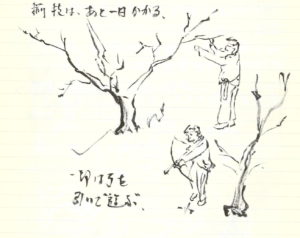 剪枝は、あと一日かかる、
は弓を
引いて遊ぶ、